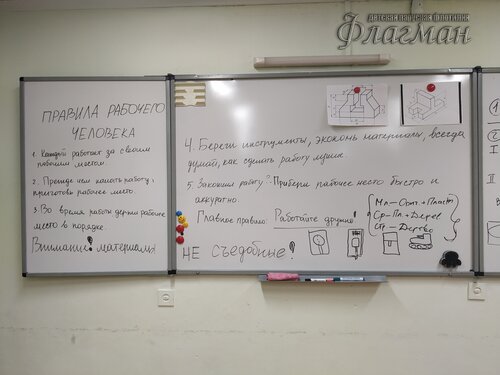 детская творческая флотилия
Флагман
ПРАВИЛА РАБОЧЕГО
ЧЕЛОВЕКА
1. Каждый работает за своим
рабочим местом.
2. Прежде чем начать работу,
приготовь рабочее место.
3. Во время работы держи рабочее
место в порядке.
Внимание! материалы
4. Береги инструменты, экономь материалы, всегда
думай, как сделать работу лучше.
5. Закончил работу? Прибери рабочее место быстро и
аккуратно.
Главное правило: Работайте дружно!
НЕ СЪЕДОБНЫЕ!
Мл – Пласт
Ср – Пл + Дерев
Ст –
1
2
I
II